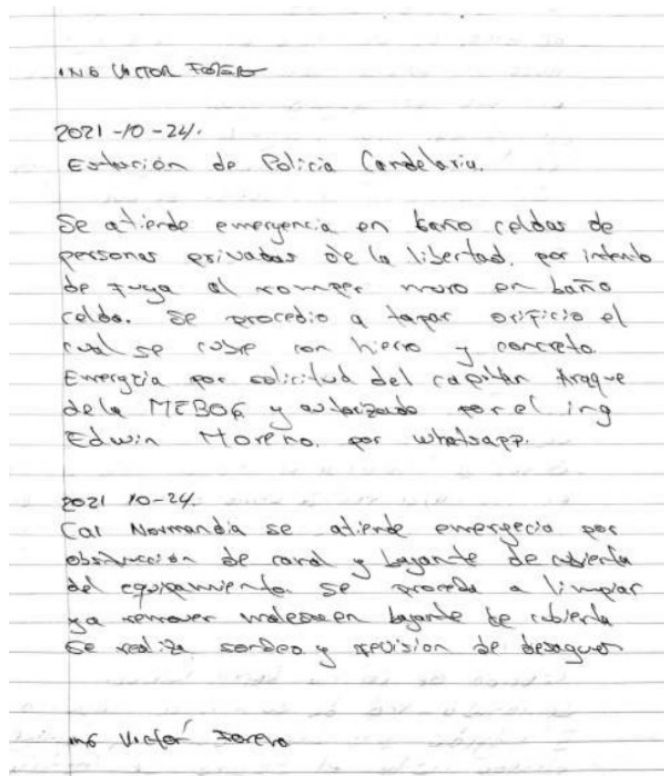 ING VICTOR FORERO
2021-10-24.
Estación de Policia Candelaria.
Se atiende emergencia en baño celdas de
personas privadas de la libertad. por intento
de fuga al romper muro en baño
celda. Se procedio a tapar orificio el
cual se cubre con hierro y concreto.
Emergcia por solicitud del capitán Araque
dela MEBOG y autorizado por el ing
Edwin Moreno. por whatsapp.
2021 10-24.
Cai Normandia se atiende emergecia por
obstrucción de canal y bajante de cubierta
del equipamiento. se proceda a limpiar
y a remover en bajante de cubierta
se realiza sondeo y revision de desagues
ING Victor Forero